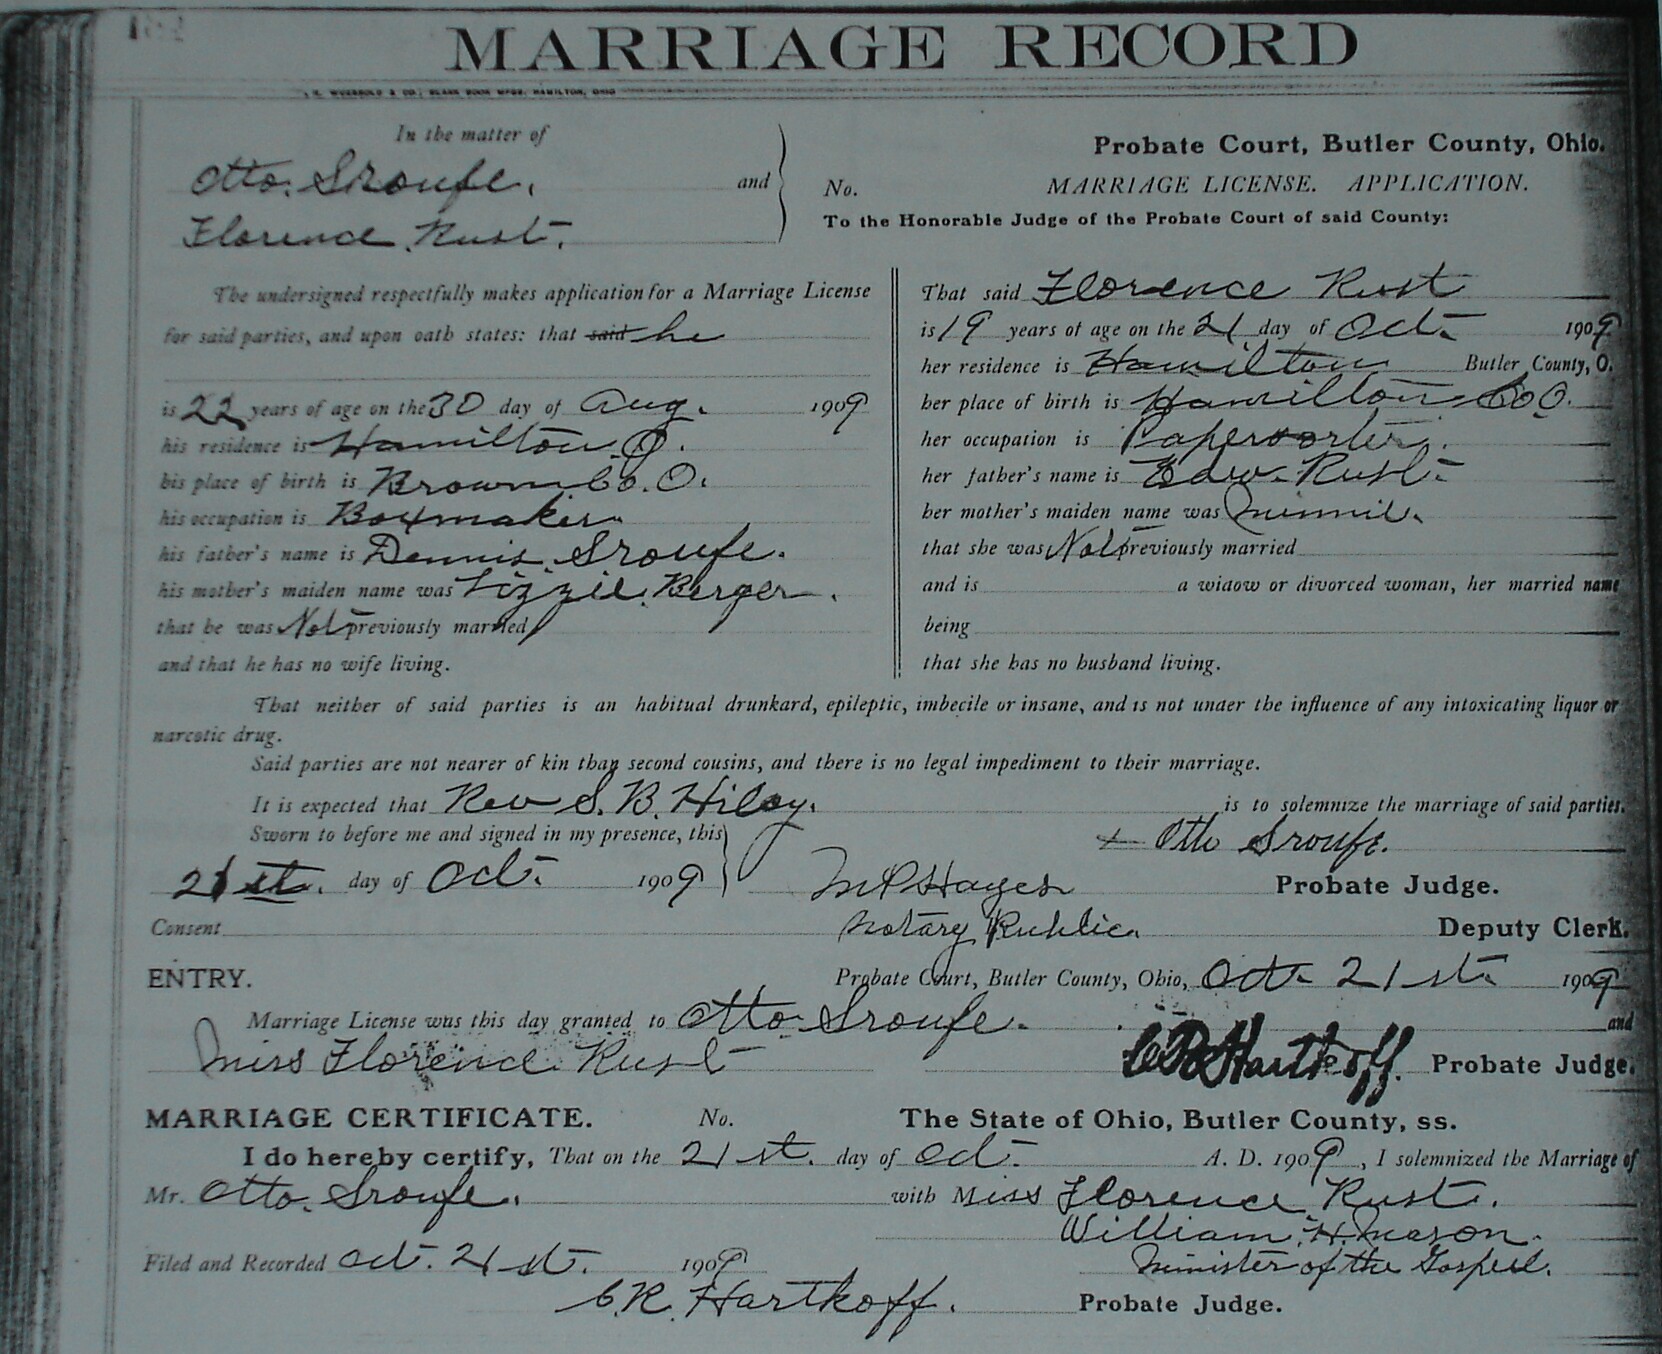 MARRIAGE RECORD
In the matter of
Otto. Sroufe. and
Florence Rust.
Probate Court, Butler County, Ohio.
No. MARRIAGE LICENSE. APPLICATION.
To the Honorable Judge of the Probate Court of said County:
The undersigned respectfully makes application for a Marriage License
for said parties, and upon oath states: that said he
is 22 years of age on the 30 day of Aug. 1909
his residence is Hamilton O.
his place of birth is Brown Co. O.
his occupation is Boxmaker
his father's name is Dennis Sroufe.
his mother's maiden name was Lizzie Berger.
that he was Not previously married
and that he has no wife living.
That said Florence Rust
is 19 years of age on the 21 day of Oct. 1909
her residence is Hamilton Butler County, O.
her place of birth is Hamilton Co O.
her occupation is Papersorter.
her father's name is Edw. Rust.
her mother's maiden name was Minnie.
that she was Not previously married
and is a widow or divorced woman, her married name
being
that she has no husband living.
That neither of said parties is an habitual drunkard, epileptic, imbecile or insane, and is not under the influence of any intoxicating liquor or
narcotic drug.
Said parties are not nearer of kin than second cousins, and there is no legal impediment to their marriage.
It is expected that Rev S. B. is to solemnize the marriage of said parties.
Sworn to before me and signed in my presence, this
x Otto Sroufe.
21st. day of Oct. 1909 M P Hayes Probate Judge.
Consent Notary Public. Deputy Clerk.
ENTRY. Probate Court, Butler County, Ohio, Oct. 21st. 1909
Marriage License was this day granted to Otto Sroufe. and
Miss Florence Rust Hartkoff. Probate Judge.
MARRIAGE CERTIFICATE. No. The State of Ohio, Butler County, ss.
I do hereby certify, That on the 21st. day of Oct. A. D. 1909, I solemnized the Marriage of
Mr. Otto. Sroufe. with Miss Florence Rust.
William H. Mason.
Filed and Recorded Oct. 21st. 1909 Minister of the Gospel.
C. R. Hartkoff. Probate Judge.